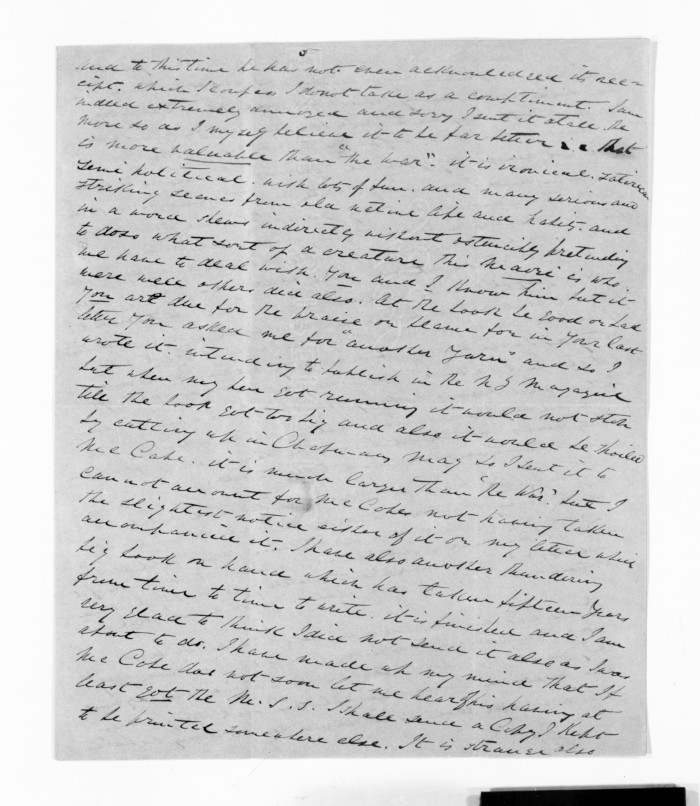 5
and to this time he has not even acknowledged its rec-
eipt. which I confess I do not take as a compliment. I am
indeed extremely annoyed and sorry I sent it at all. the
more so as I myself believe it to be far better that
is more valuable than "the War". it is ironical, satirical
semi political. with lots of fun. and many serious and
striking scenes from old native life and habits. and
in a word shews indirectly without ostensibly pretending
to do so what sort of a creature this Maori is who
we have to deal with. You and I know him but it
were well others did also. As the book be good or bad
You are due for the praise or blame for in your last
letter You asked me for "another Yarn" and so I
wrote it. intending to publish in the N Z Magazine
but when my pen got running it would not stop
till the book got too big and also it would be spoiled
by cutting up in Chapmans Mag so I sent it to
Mc Cabe. it is much larger than "the War." but I
cannot account for Mc Cabes not having taken
the slightest notice either of it or my letter which
accompanied it. I have also another thundering
big book on hand which has taken fifteen Years
from time to time to write. it is finished and I am
very glad to think I did not send it also as I was
about to do. I have made up my mind that if
Mc Cabe does not soon let me hear of his having at
least got the M.S.S. I shall send a Copy I Kept
to be printed somewhere else. It is strange also